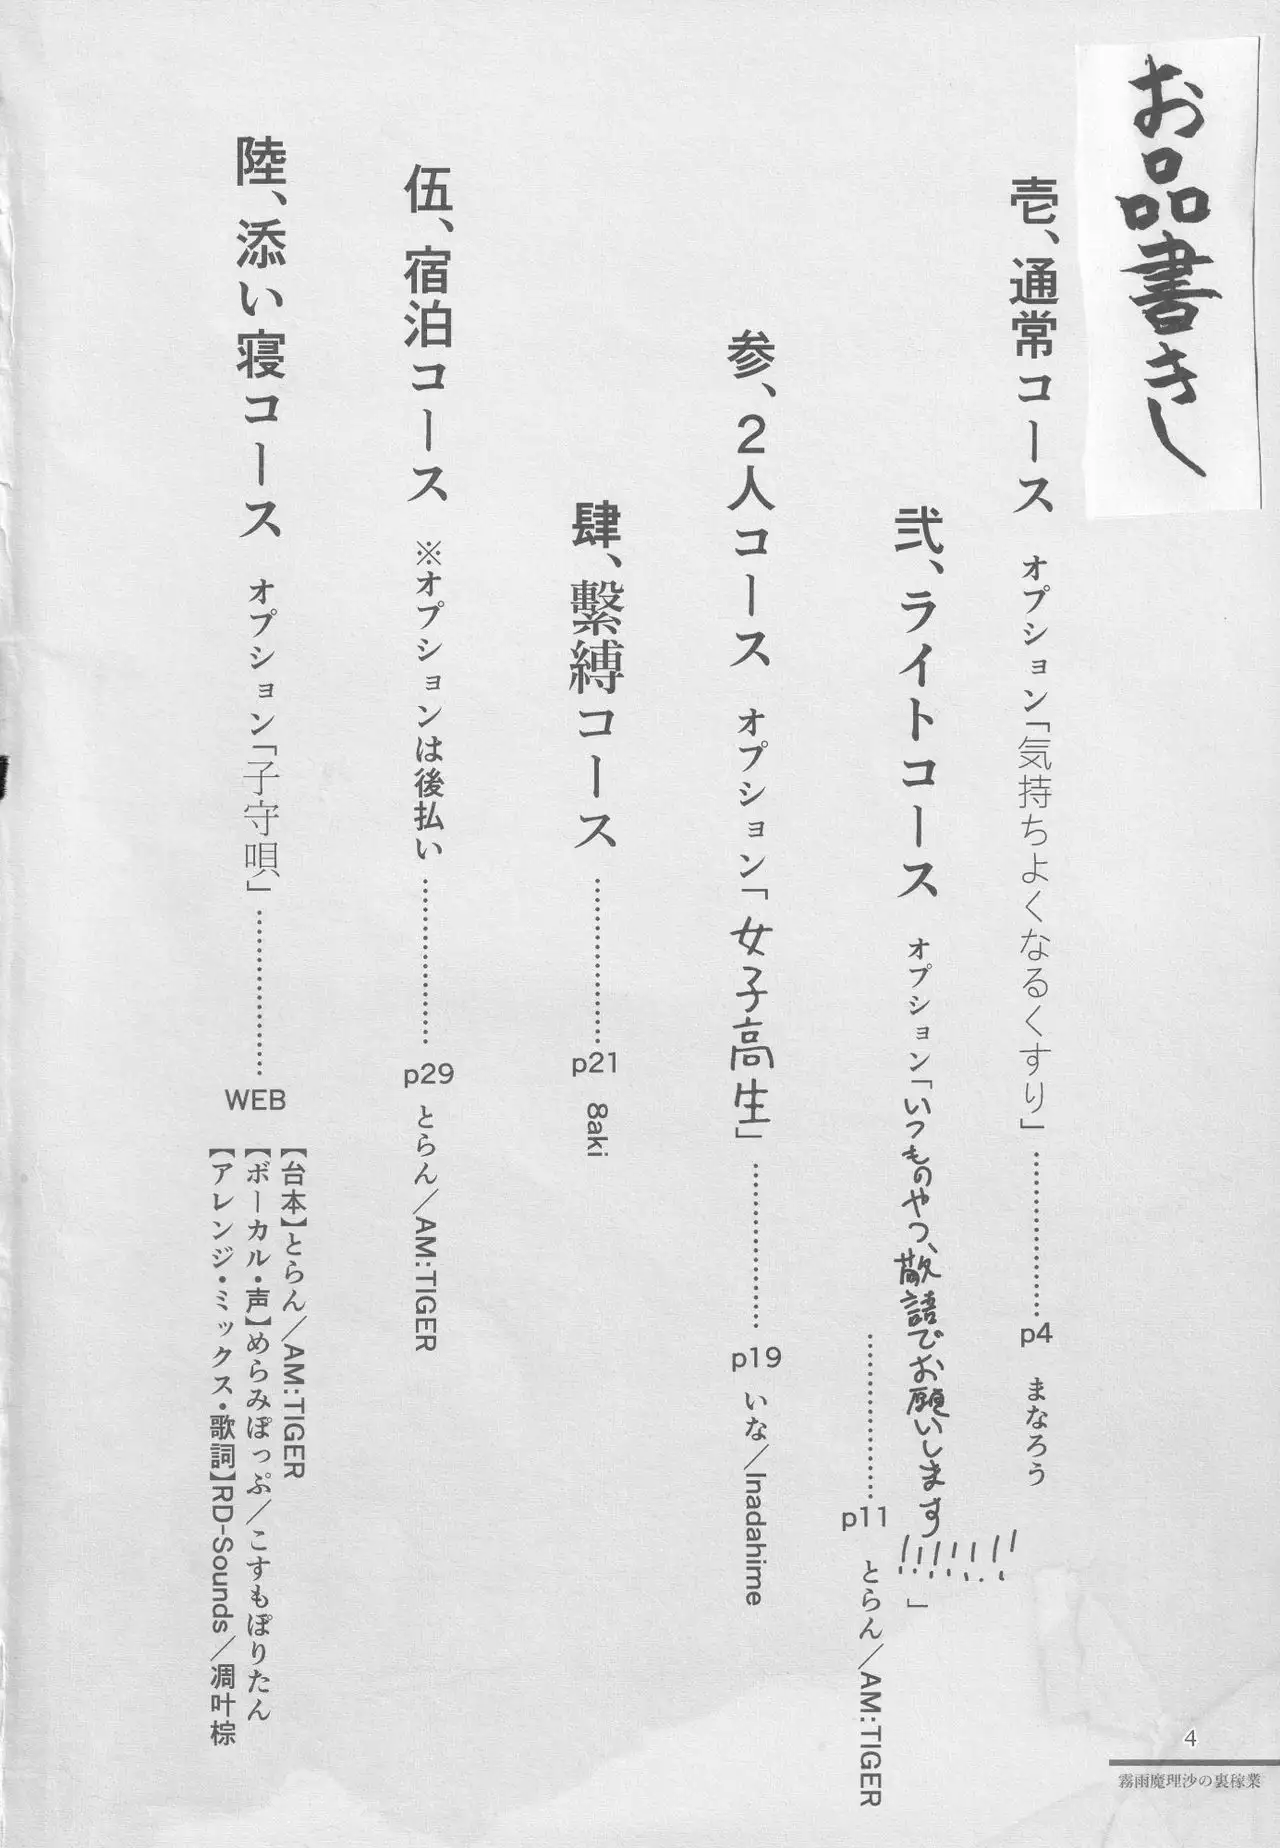 お品書きし
壱、通常コース オプション「気持ちよくなるくすり」………………p4 まなろう
弐、ライトコース オプション「いつものやつ、敬語でお願いします!!!!!!!」
………………p11 とらん/AM:TIGER
参、2人コース オプション「女子高生」………………p19 いな/Inadahime
肆、繫縛コース………………p21 8aki
伍、宿泊コース ※オプションは後払い………………p29 とらん/AM:TIGER
陸、添い寝コース オプション「子守唄」………………WEB
【台本】とらん/AM:TIGER
【ボーカル・声】めらみぽっぷ/こすもぽりたん
【アレンジ・ミックス・歌詞】RD-Sounds/凋叶棕
4
霧雨魔理沙の裏稼業